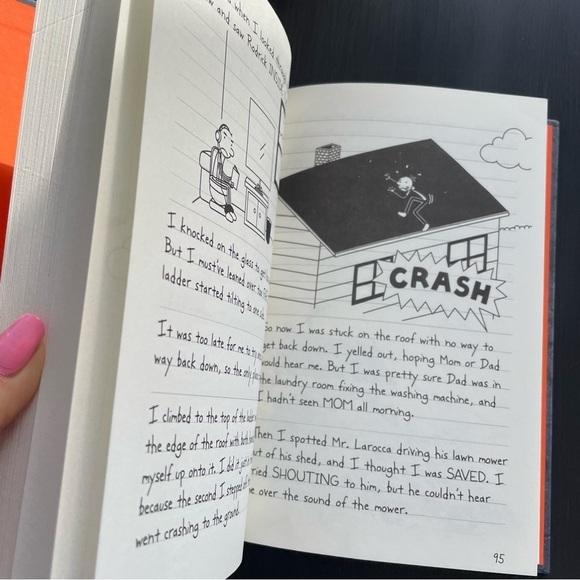 when I looked through
and saw Rodrick
I knocked on the glass to
But I must've leaned over too
ladder started tilting to one
It was too late for me to
way back down, so the only
I climbed to the top of the
the edge of the roof with both
myself up onto it. I did it just in
because the second I stepped off
went crashing to the ground.
CRASH
So now I was stuck on the roof with no way to
get back down. I yelled out, hoping Mom or Dad
would hear me. But I was pretty sure Dad was in
the laundry room fixing the washing machine, and
I hadn't seen MOM all morning.
Then I spotted Mr. Larocca driving his lawn mower
out of his shed, and I thought I was SAVED. I
tried SHOUTING to him, but he couldn't hear
me over the sound of the mower.
95